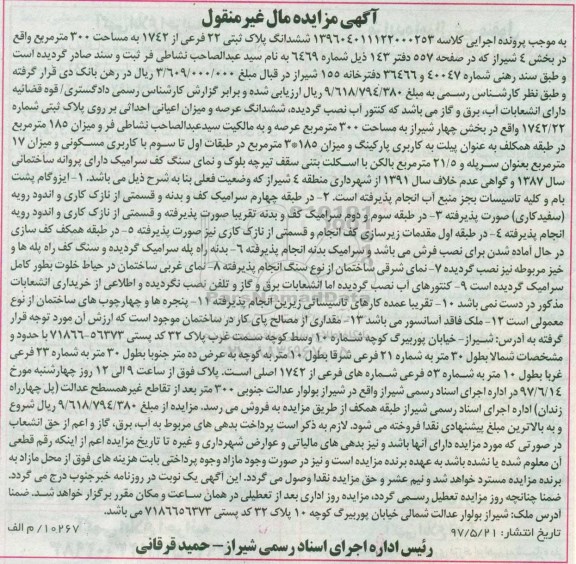 آگهی مزایده مال غیر منقول
به موجب پرونده اجرایی کلاسه ۱۳۹۶۰۴۰۱۱۱۲۲۰۰۰۲۵۳ ششدانگ پلاک ثبتی ۲۲ فرعی از ۱۷۴۲ به مساحت ۳۰۰ مترمربع واقع
در بخش ۴ شیراز که در صفحه ۵۵۷ دفتر ۱۴۳ ذیل شماره ۶۴۶۹ به نام سید عبدالصاحب نشاطی فر ثبت و سند صادر گردیده است
و طبق سند رهنی شماره ۴۰۰۴۷ و ۳۶۴۶۶ دفترخانه ۱۵۵ شیراز در قبال مبلغ ۳/۶۰۹/۰۰۰/۰۰۰ ریال در رهن بانک دی قرار گرفته
و طبق نظر کارشناس رسمی به مبلغ ۹/۶۱۸/۷۹۴/۳۸۰ ریال ارزیابی شده و برابر گزارش کارشناس رسمی دادگستری/ قوه قضائیه
دارای انشعابات آب، برق و گاز می باشد که کنتور آب نصب گردیده، ششدانگ عرصه و میزان اعیانی احداثی بر روی پلاک ثبتی شماره
۱۷۴۲/۲۲ واقع در بخش چهار شیراز به مساحت ۳۰۰ مترمربع عرصه و به مالکیت سیدعبدالصاحب نشاطی فر و میزان ۱۸۵ مترمربع
در طبقه همکف به عنوان پیلت به کاربری پارکینگ و میزان ۳۰۱۸۵ مترمربع در طبقات اول تا سوم با کاربری مسکونی و میزان ۱۷
مترمربع بعنوان سرپله و ۲۱/۵ مترمربع بالکن با اسکلت بتنی سقف تیرچه بلوک و نمای سنگ کف سرامیک دارای پروانه ساختمانی
سال ۱۳۸۷ و گواهی عدم خلاف سال ۱۳۹۱ از شهرداری منطقه ۴ شیراز که وضعیت فعلی بنا به شرح ذیل می باشد. ۱- ایزوگام پشت
بام و کلیه تاسیسات بجز منبع آب انجام پذیرفته است. ۲- در طبقه چهارم سرامیک کف و بدنه و قسمتی از نازک کاری و اندود رویه
(سفیدکاری) صورت پذیرفته ۳- در طبقه سوم و دوم سرامیک کف و بدنه تقریبا صورت پذیرفته و قسمتی از نازک کاری و اندود رویه
انجام پذیرفته ۴- در طبقه اول مقدمات زیرسازی کف انجام و قسمتی از نازک کاری نیز صورت پذیرفته ۵- در طبقه همکف کف سازی
در حال اماده شدن برای نصب فرش می باشد و سرامیک بدنه انجام پذیرفته ۶- بدنه راه پله سرامیک گردیده و سنگ کف راه پله ها و
خیز مربوطه نیز نصب گردیده ۷- نمای شرقی ساختمان از نوع سنگ انجام پذیرفته ۸- نمای غربی ساختمان در حیاط خلوت بطور کامل
سرامیک گردیده است ۹- کنتورهای آب نصب گردیده اما انشعابات برق و گاز و تلفن نصب نگردیده و اطلاعی از خریداری انشعابات
مذکور در دست نمی باشد ۱۰- تقریبا عمده کارهای تاسیساتی زیرین انجام پذیرفته ۱۱- پنجره ها و چهارچوب های ساختمان از نوع
معمولی است ۱۲- ملک فاقد آسانسور می باشد ۱۳- مقداری از مصالح پای کار در ساختمان موجود است که ارزش آن مورد توجه قرار
گرفته به آدرس: شیراز- خیابان پوربیرگ کوچه شماره ۱۰ وسط کوچه سمت غرب پلاک ۳۲ کد پستی ۵۶۳۷۳-۷۱۸۶۶ با حدود و
مشخصات شمالا بطول ۳۰ متر به شماره ۲۱ فرعی شرقا بطول ۱۰ متر به کوچه به عرض ده متر جنوبا بطول ۳۰ متر به شماره ۲۳ فرعی
غربا بطول ۱۰ متر به شماره ۵۳ فرعی شماره های فرعی از ۱۷۴۲ اصلی است. پلاک فوق از ساعت ۹ الی ۱۲ روز چهارشنبه مورخ
۹۷/۶/۱۴ در اداره اجرای اسناد رسمی شیراز واقع در شیراز بولوار عدالت جنوبی ۳۰۰ متر بعد از تقاطع غیرهمسطح عدالت (پل چهارراه
زندان) اداره اجرای اسناد رسمی شیراز طبقه همکف از طریق مزایده به فروش می رسد. مزایده از مبلغ ۹/۶۱۸/۷۹۴/۳۸۰ ریال شروع
و به بالاترین مبلغ پیشنهادی نقدا فروخته می شود. لازم به ذکر است پرداخت بدهی های مربوط به آب، برق، گاز و اعم از حق انشعاب
در صورتی که مورد مزایده دارای آنها باشد و نیز بدهی های مالیاتی و عوارض شهرداری و غیره تا تاریخ مزایده اعم از اینکه رقم قطعی
آن معلوم شده یا نشده باشد به عهده برنده مزایده است و نیز در صورت وجود مازاد وجوه پرداختی بابت هزینه های فوق از محل مازاد به
برنده مزایده مسترد خواهد شد و نیم عشر و حق مزایده نقدا وصول می گردد. این آگهی یک نوبت در روزنامه خبرجنوب درج می گردد.
ضمنا چنانچه روز مزایده تعطیل رسمی گردد، مزایده روز اداری بعد از تعطیلی در همان ساعت و مکان مقرر برگزار خواهد شد. ضمنا
آدرس ملک: شیراز بولوار عدالت شمالی خیابان پوربیرگ کوچه ۱۰ پلاک ۳۲ کد پستی ۷۱۸۶۶۵۶۳۷۳ می باشد.
تاریخ انتشار: ۹۷/۵/۲۱
۱۰۲۶۷/م الف
رئیس اداره اجرای اسناد رسمی شیراز- حمید قرقانی